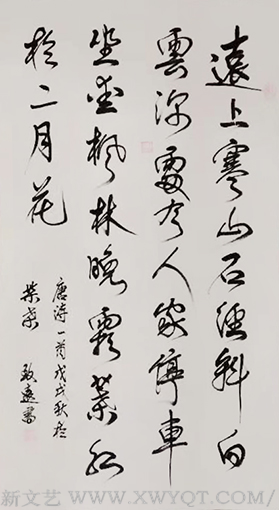 遠上寒山石徑斜白
雲深處有人家停車
坐愛楓林晚霜葉紅
於二月花
唐詩一首戊戌秋
書
新文艺 WWW.XWYQT.COM/